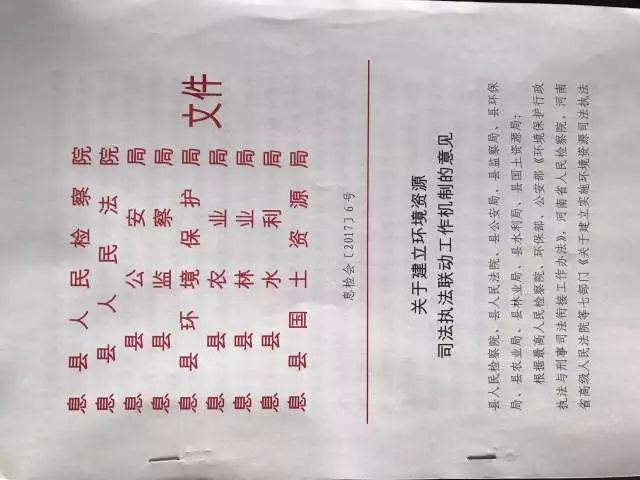 息县人民检察院
息县人民法院
息县公安局
息县监察局
息县环境保护局
息县农业局
息县林业局
息县水利局
息县国土资源局
文件
息检会〔2017〕6号
关于建立环境资源
司法执法联动工作机制的意见
县人民检察院、县人民法院、县公安局、县监察局、县环保
局、县农业局、县林业局、县水利局、县国土资源局：
根据最高人民检察院、环保部、公安部《环境保护行政
执法与刑事司法衔接工作办法》，河南省人民检察院，河南
省高级人民法院等七部门《关于建立实施环境资源司法执法